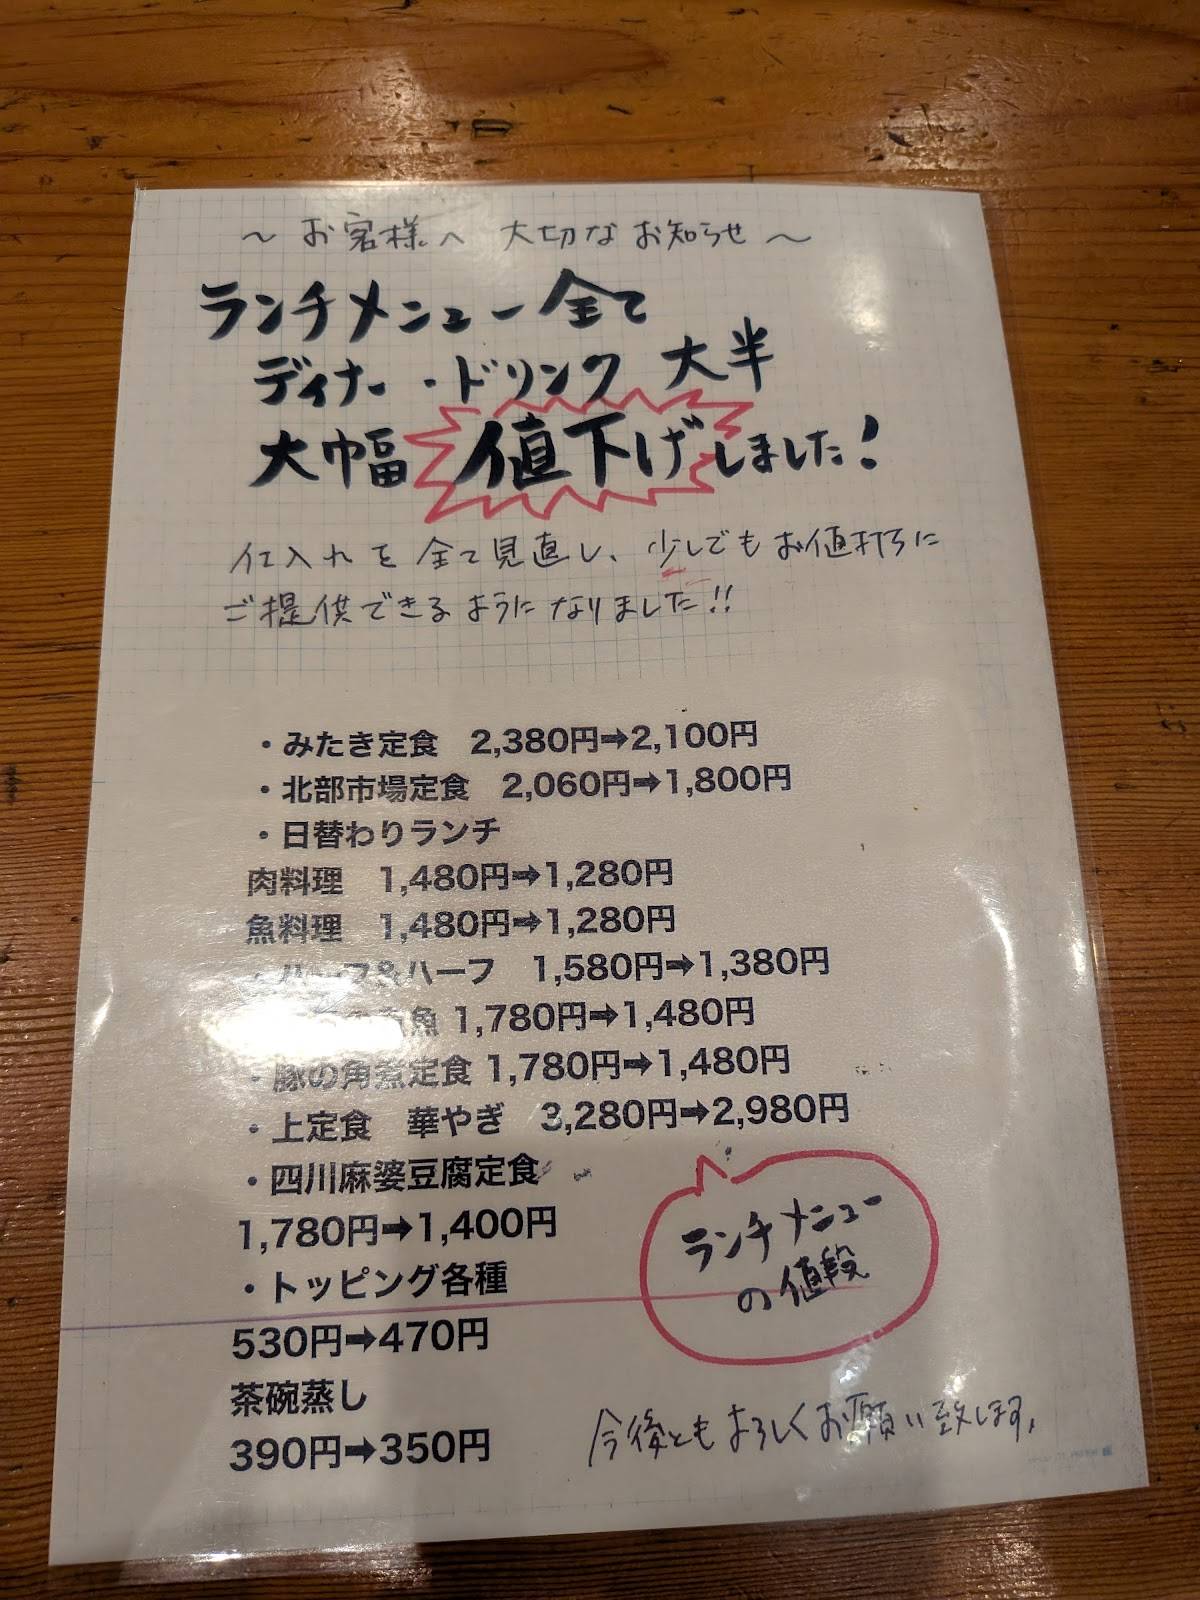 ～お客様へ 大切なお知らせ～
ランチメニュー全て
ディナー・ドリンク 大半
大幅 値下げしました!
仕入れを全て見直し、少しでもお値打ちに
ご提供できるようになりました!!
・みたき定食 2,380円➡2,100円
・北部市場定食 2,060円➡1,800円
・日替わりランチ
肉料理 1,480円➡1,280円
魚料理 1,480円➡1,280円
・ハーフ&ハーフ 1,580円➡1,380円
魚 1,780円➡1,480円
・豚の角煮定食 1,780円➡1,480円
・上定食 華やぎ 3,280円➡2,980円
・四川麻婆豆腐定食
1,780円➡1,400円
・トッピング各種
530円➡470円
茶碗蒸し
390円➡350円
ランチメニュー
の値段
今後ともよろしくお願い致します。